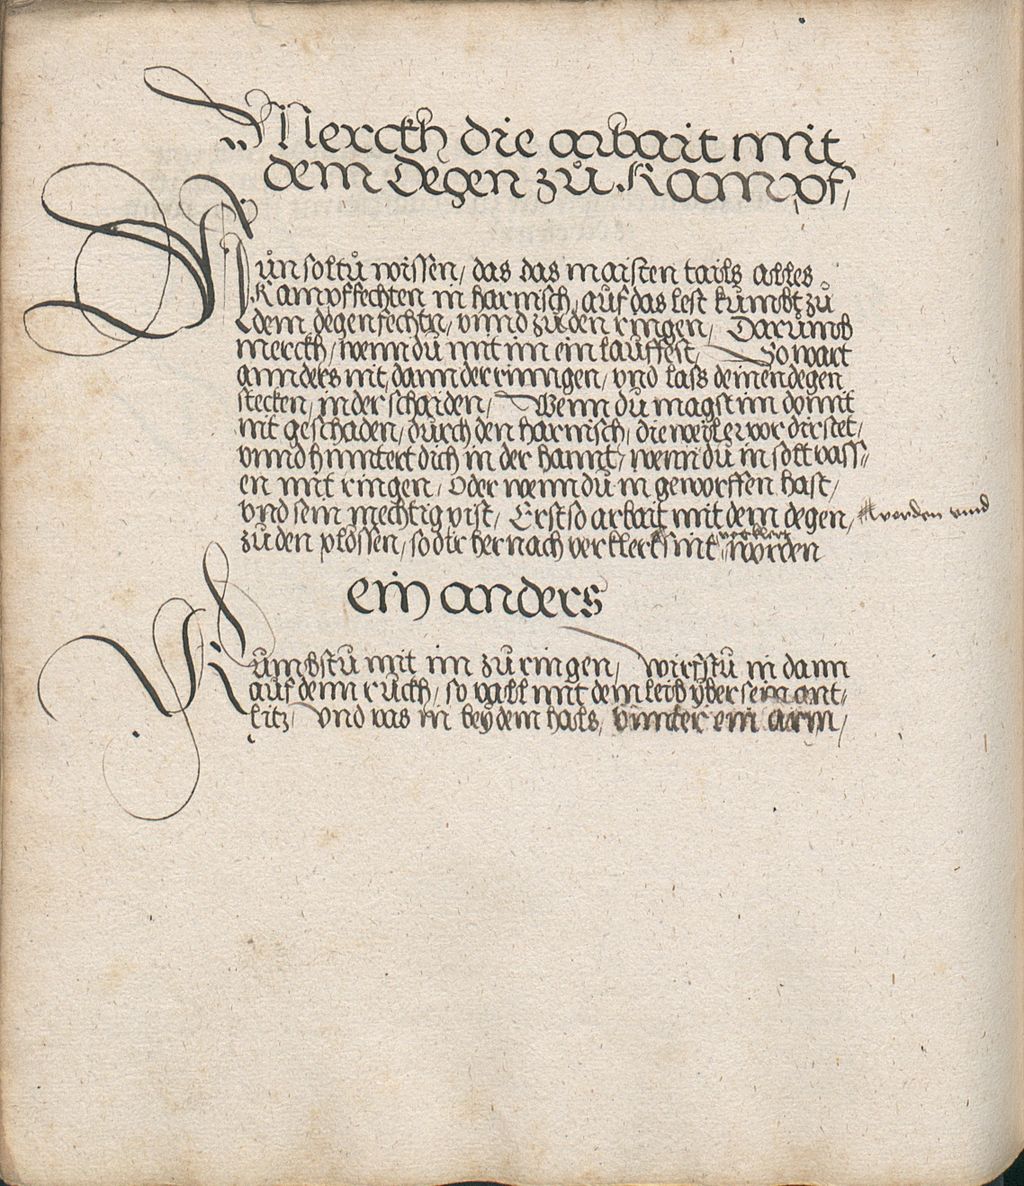 Merckh die arbait mit
dem degen zů Kampf/
Nůn soltů wissen/ das das maisten tails alles
Kampffechten in harnisch, aůf das lest kůmbt zů
dem degenfechtn, vnnd zů den ringen/ Darumb
merckh/ wenn dů mit im ein laůffest/ So wart
annders nit, dann der rinngen/ vnd lass deinen degen
stecken/ in der schaiden/ Wenn dů magst im domit
nit geschaden/ důrch den harnisch/ die weil er vor dir stet/
vnnd hinntert dich in der hannt/ wenn dů in solt vass=
en mit ringen/ Oder wenn dů in geworffen hast/
vnd sein mechtig pist/ Erst so arbait mit dem degen/ verden vnd
zů den plossen/ so dir hernach verklert sint worden
ein anders
Kůmbstů mit im zů ringen/ wirfstů in dann
aůf denn růckh/ so vall mit dem leib ÿber sein ant=
litz/ vnd vas in beÿ dem hals/ vnnter ein arm/